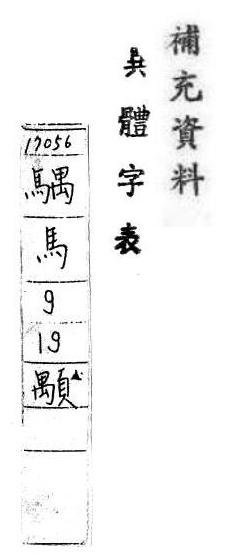 補充資料
異體字表
17056
馬
9
19
顒